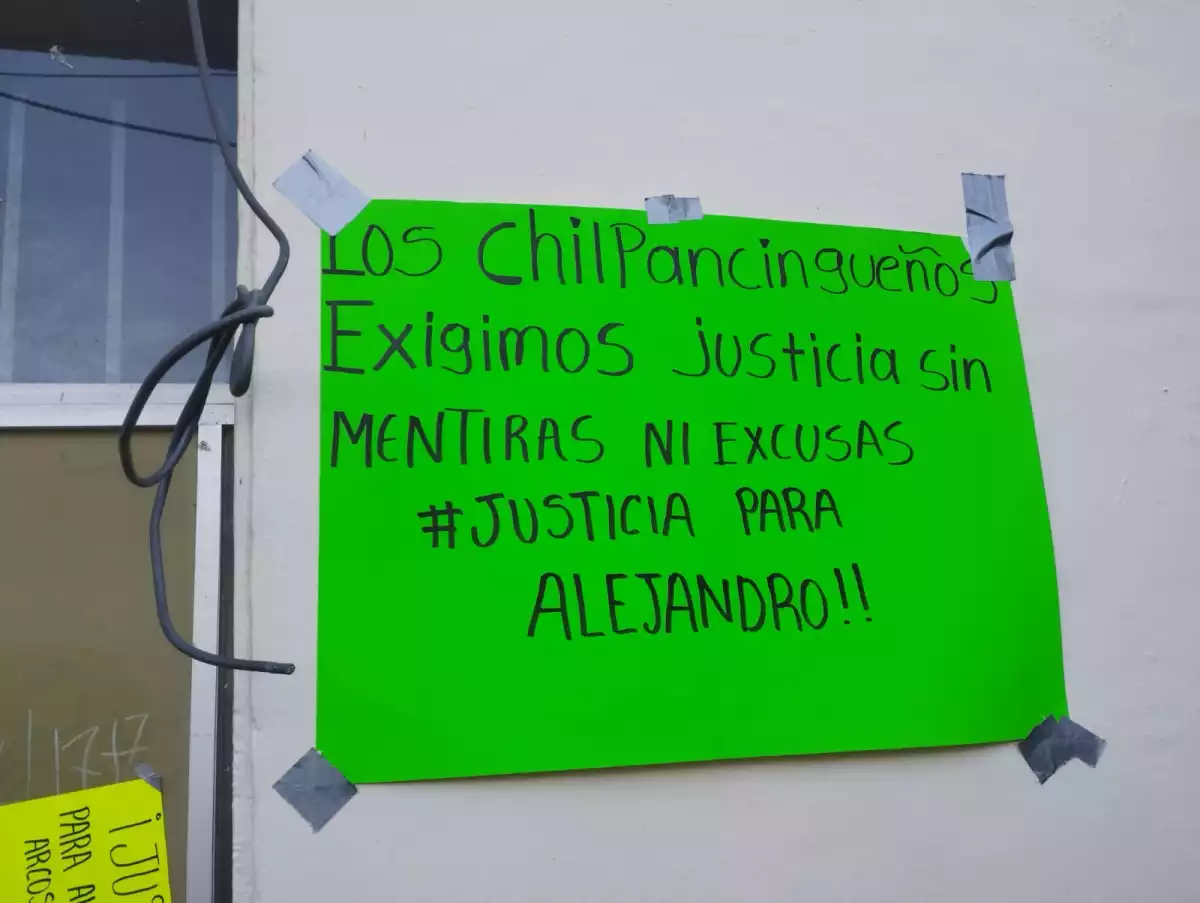 Los ChilPancingueños
Exigimos justicia sin
MENTIRAS NI EXCUSAS
#JUSTICIA PARA
ALEJANDRO!!
¡JUS
PARA
ARCOS